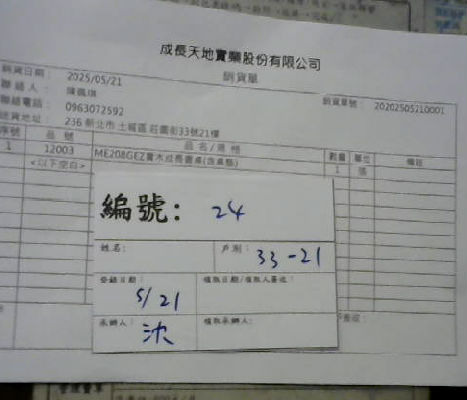 成長天地實業股份有限公司
銷貨單
銷貨日期： 2025/05/21
銷貨單號： 20202505210001
聯絡人：
聯絡電話： 0963072592
送貨地址： 236 新北市土城區莊園街33號21樓
序號 品號 品名/規格 數量 單位 備註
1 12003 ME208GEZ實木成長書桌(含桌墊) 1 張
<以下空白>
編號: 24
姓名: 戶別: 33-21
登錄日期: 5/21 領取日期/領取人簽收:
承辦人: 沈 領取承辦人: